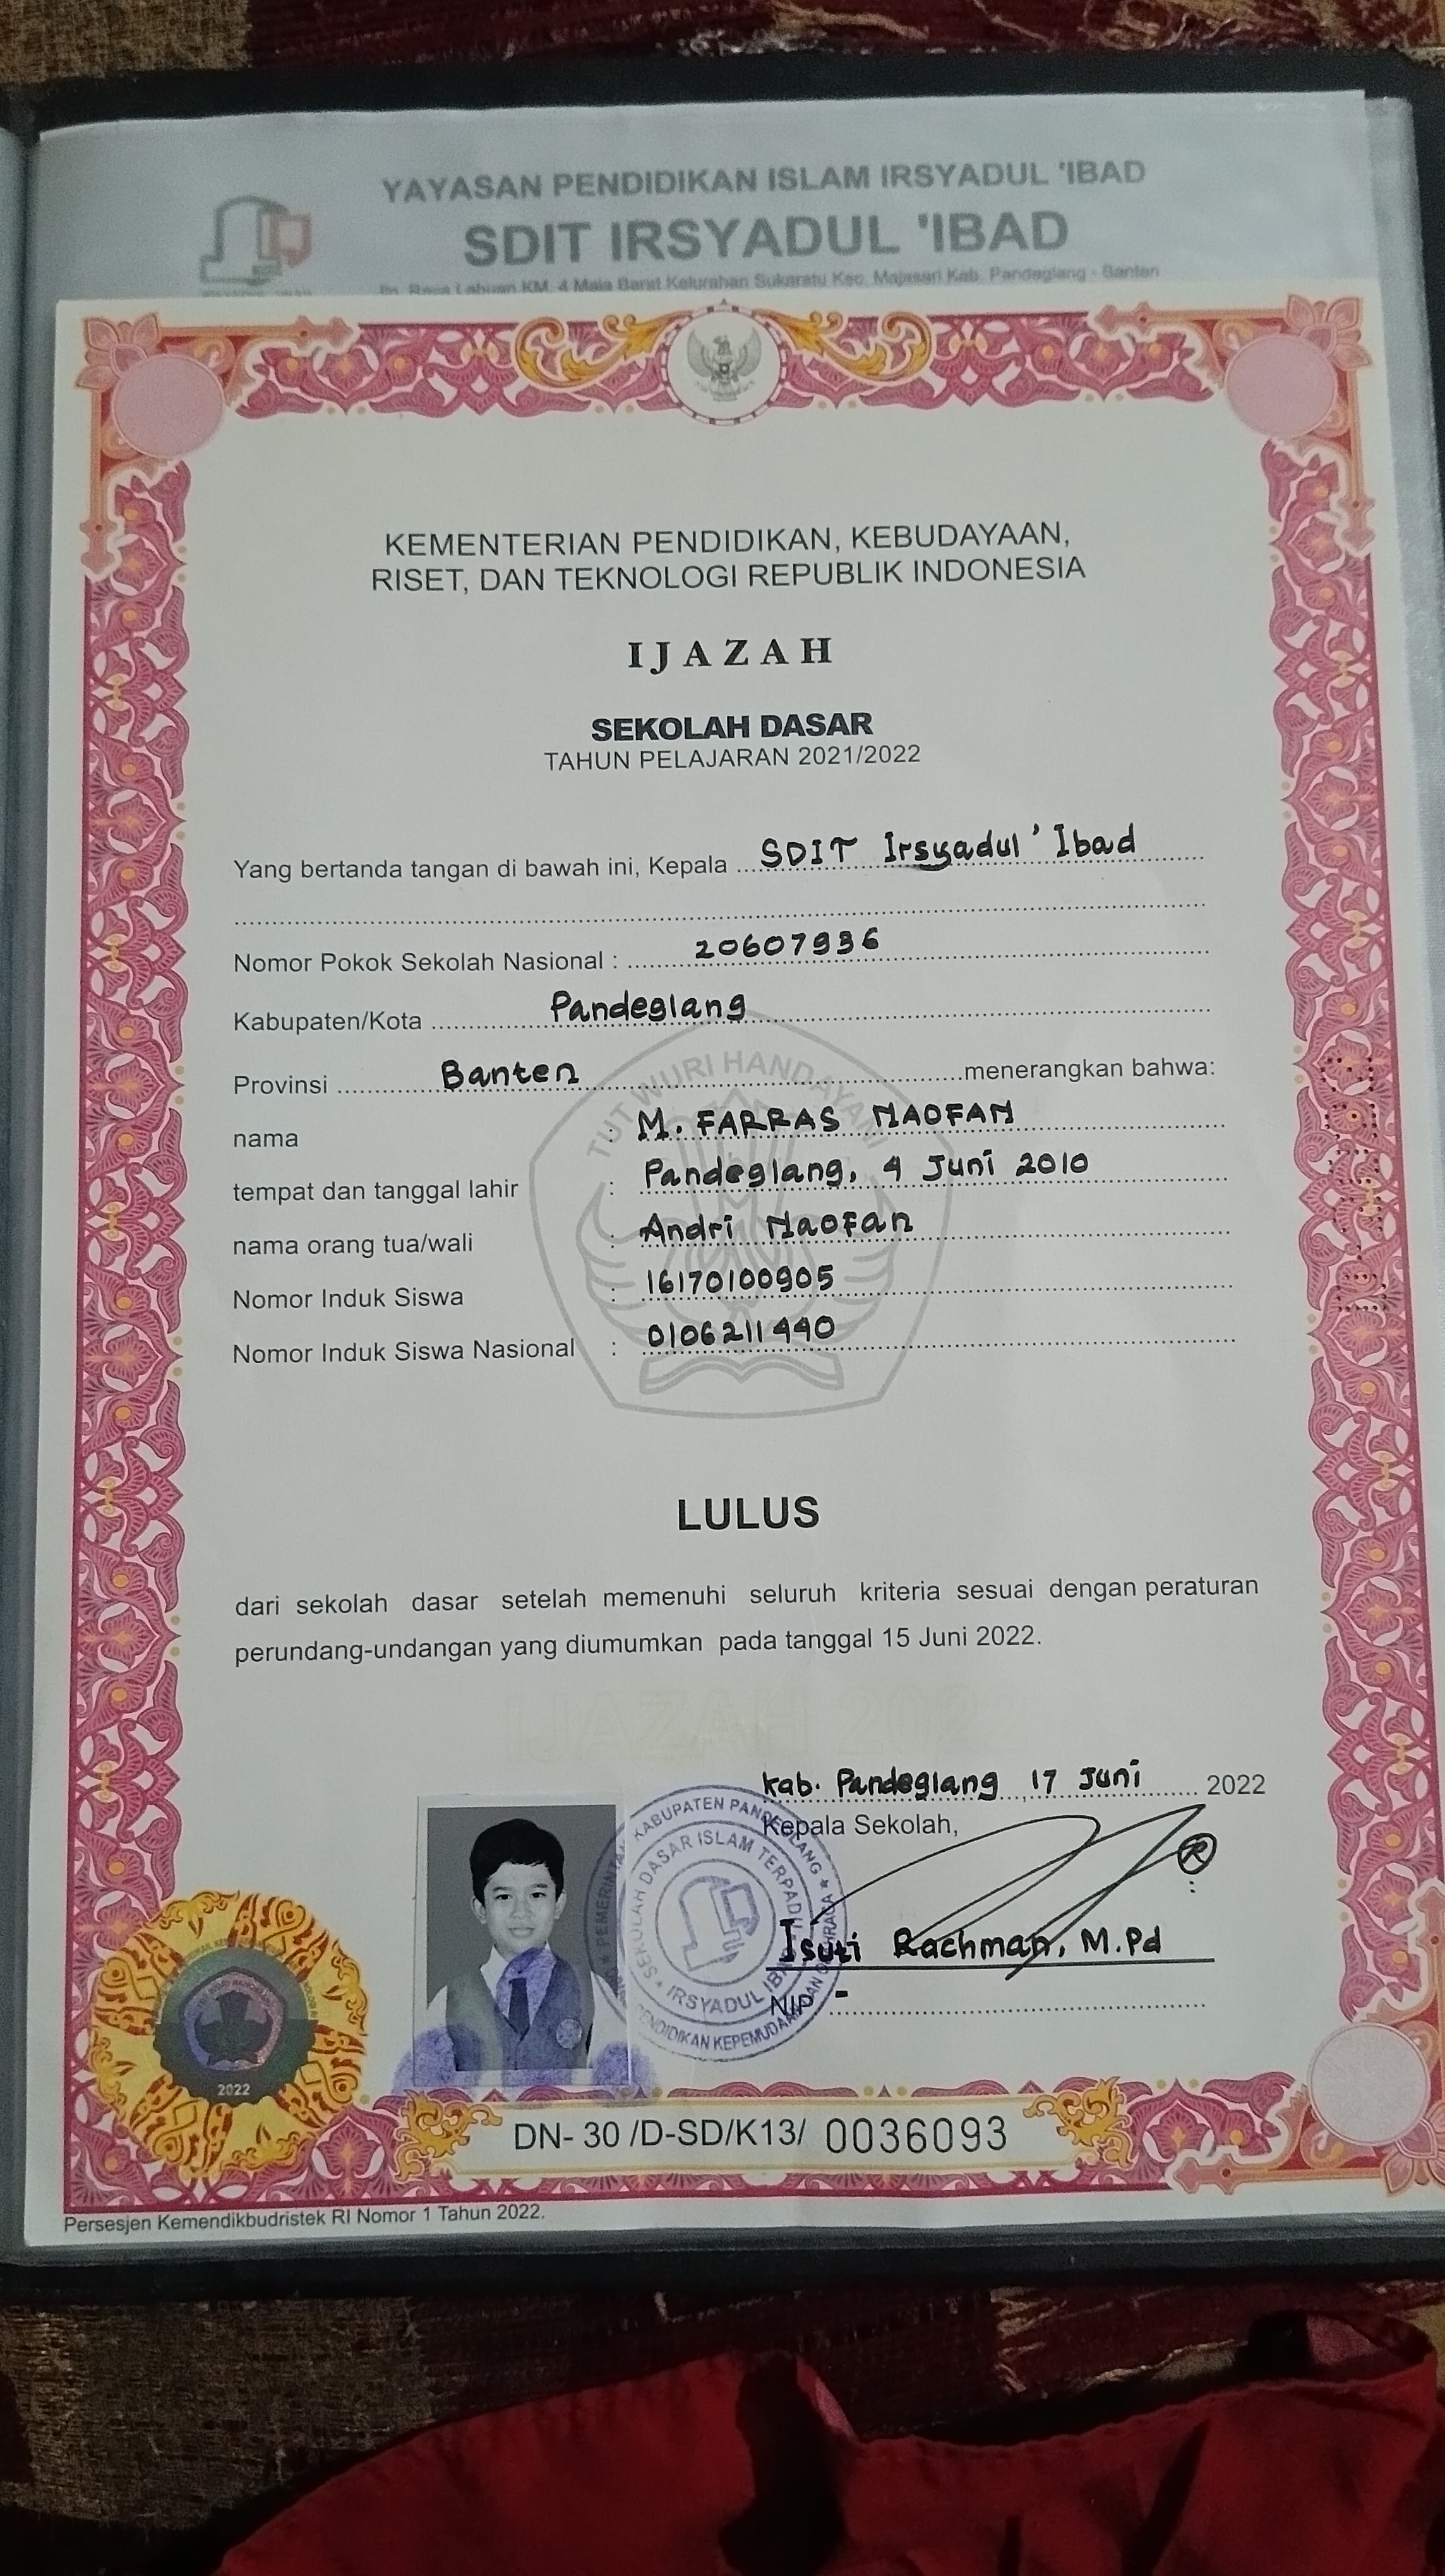 YAYASAN PENDIDIKAN ISLAM IRSYADUL 'IBAD
SDIT IRSYADUL 'IBAD
Raya Labuan KM. 4 Maja Barat Kelurahan Sukaratu Kec. Majasari Kab. Pandeglang - Banten
KEMENTERIAN PENDIDIKAN, KEBUDAYAAN,
RISET, DAN TEKNOLOGI REPUBLIK INDONESIA
IJAZAH
SEKOLAH DASAR
TAHUN PELAJARAN 2021/2022
Yang bertanda tangan di bawah ini, Kepala SDIT Irsyadul 'Ibad
Nomor Pokok Sekolah Nasional : 20607936
Kabupaten/Kota Pandeglang
Provinsi Banten menerangkan bahwa:
TUT WURI HANDAYANI
nama : M. FARRAS NAOFAN
tempat dan tanggal lahir : Pandeglang, 4 Juni 2010
nama orang tua/wali : Andri Naofan
Nomor Induk Siswa : 16170100905
Nomor Induk Siswa Nasional : 0106211440
LULUS
dari sekolah dasar setelah memenuhi seluruh kriteria sesuai dengan peraturan
perundang-undangan yang diumumkan pada tanggal 15 Juni 2022.
IJAZAH 2022
Kab. Pandeglang, 17 Juni 2022
Kepala Sekolah,
Isuti Rachman, M.Pd
NIP -
KABUPATEN PANDEGLANG
SEKOLAH DASAR ISLAM TERPADU
IRSYADUL IBAD
2022
DN- 30 /D-SD/K13/ 0036093
Persesjen Kemendikbudristek RI Nomor 1 Tahun 2022.